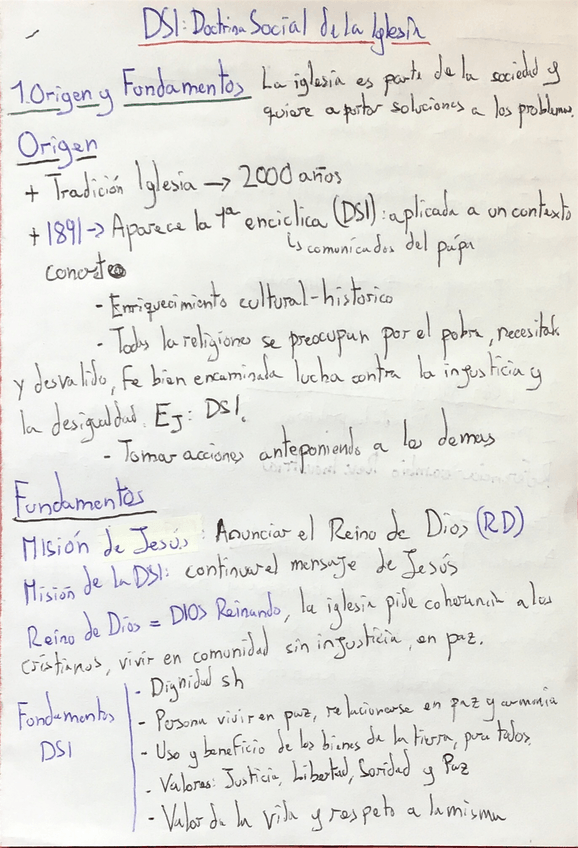 DSI: Doctrina Social de la Iglesia
1. Origen y Fundamentos La iglesia es parte de la sociedad y
quiere aportar soluciones a los problemas.
Origen
+ Tradición Iglesia → 2000 años
+ 1891 → Aparece la 1ª enciclica (DSI): aplicada a un contexto
↳ comunicados del papa
concreto
- Enriquecimiento cultural-historico
- Todas la religiones se preocupan por el pobre, necesitado
y desvalido, Fe bien encaminada lucha contra la injusticia y
la desigualdad. Ej: DSI.
- Tomar acciones anteponiendo a los demas
Fundamentos
Misión de Jesús: Anunciar el Reino de Dios (RD)
Misión de la DSI: continuar el mensaje de Jesús
Reino de Dios = DIOS Reinando, la iglesia pide coherencia a los
cristianos, vivir en comunidad sin injusticia, en paz.
Fundamentos
DSI
- Dignidad sh
- Persona vivir en paz, relacionarse en paz y armonia
- Uso y beneficio de los bienes de la tierra, para todos.
- Valores: Justicia, Libertad, Soridad y Paz
- Valor de la vida y respeto a la misma